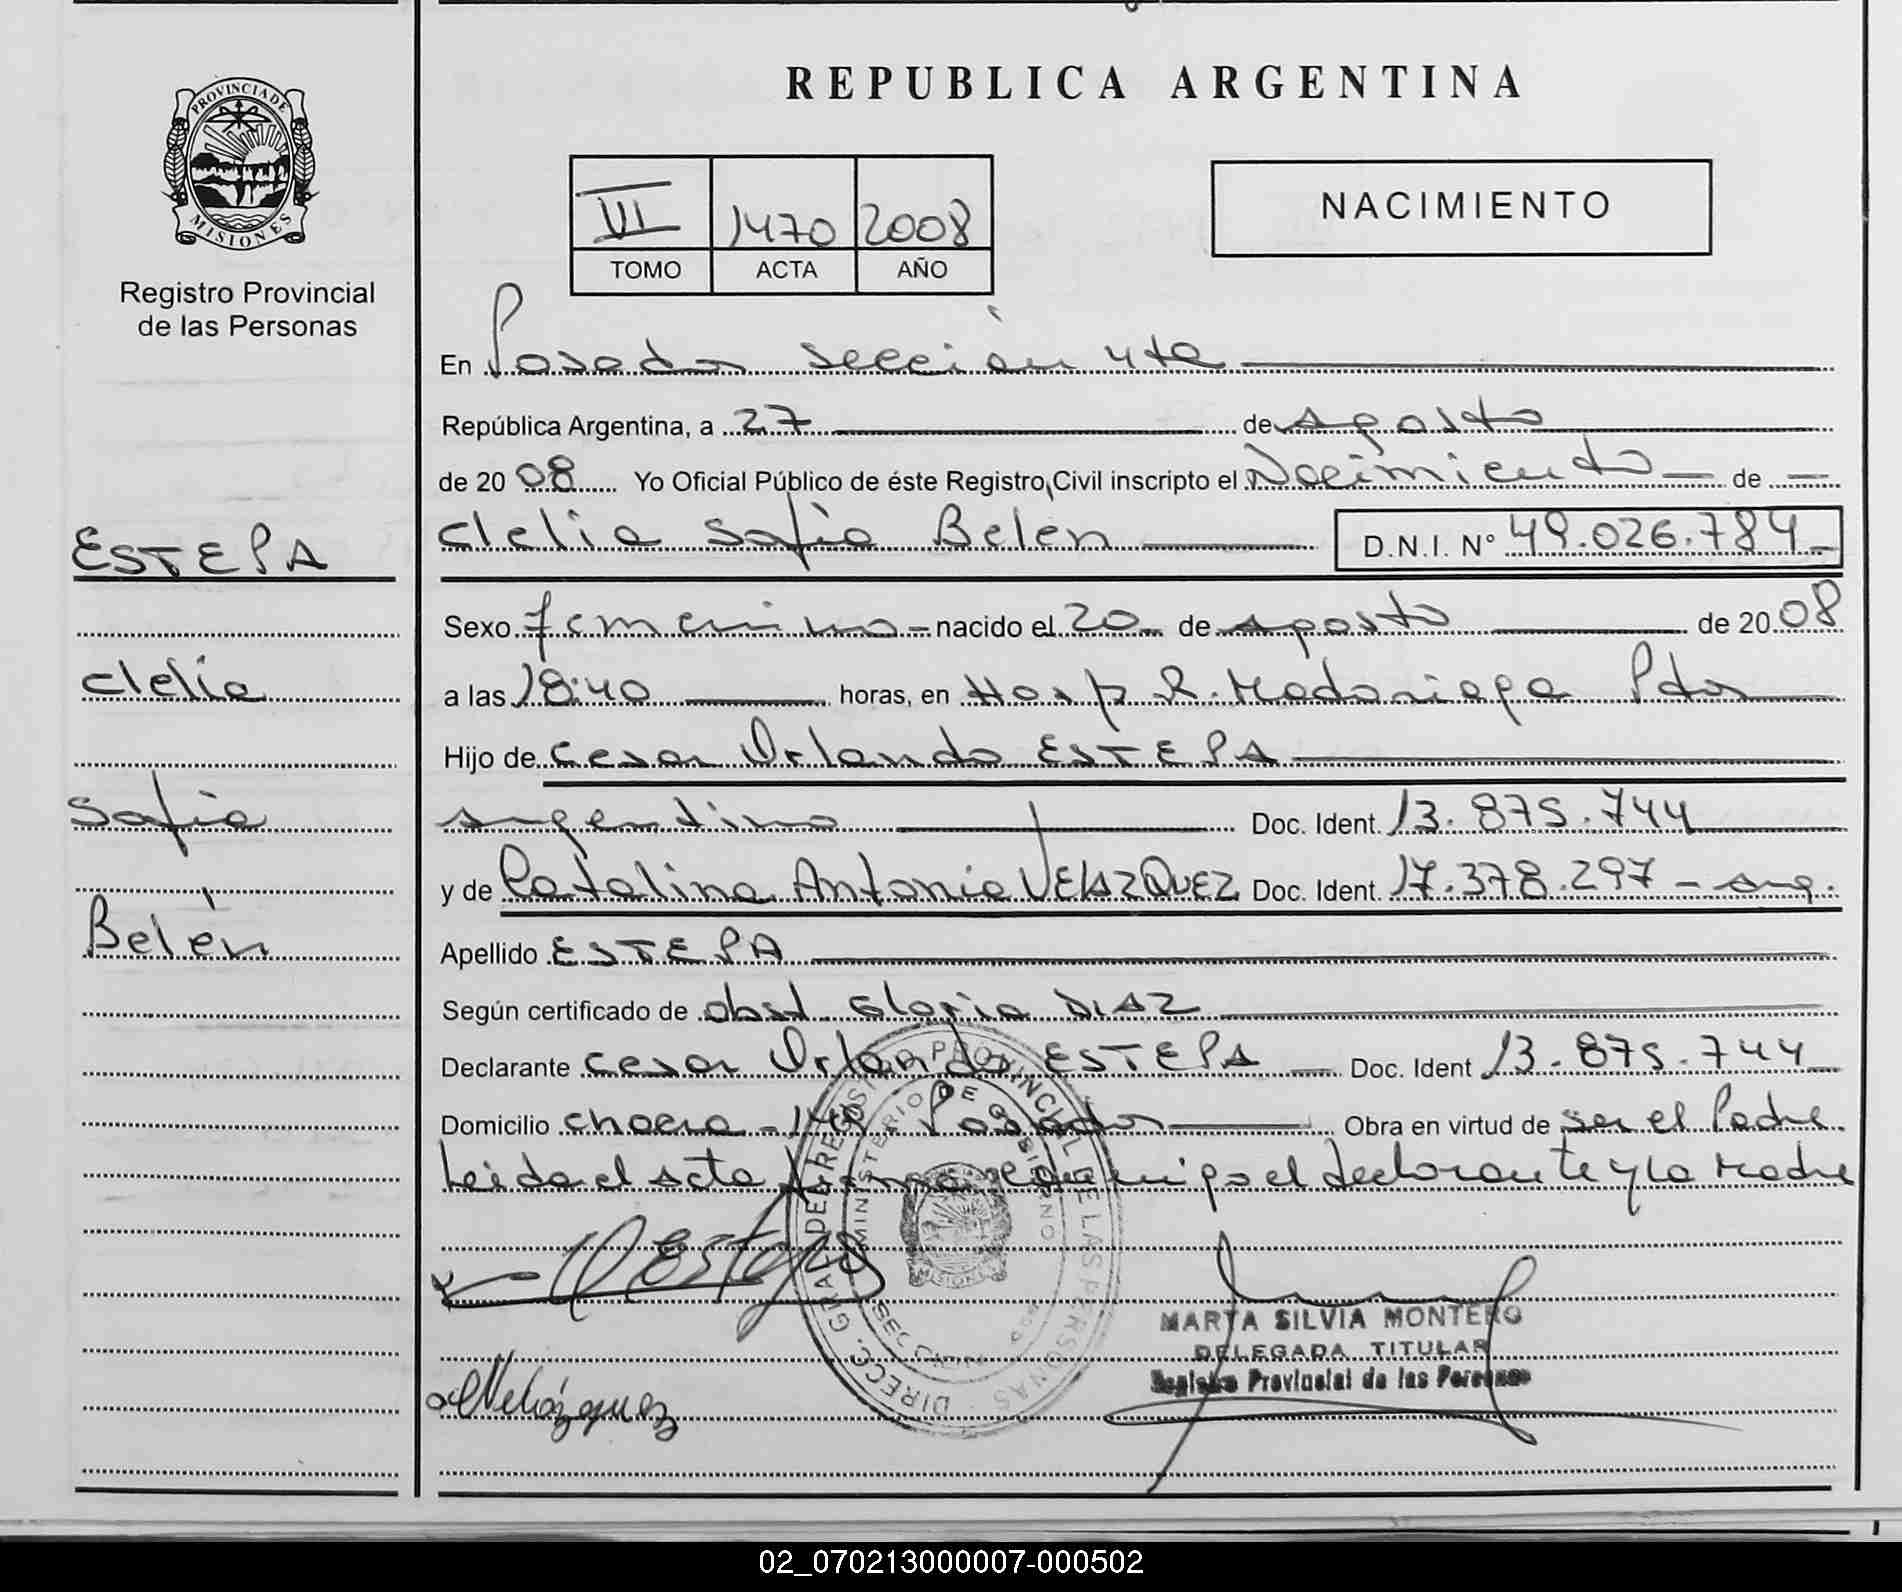 REPUBLICA ARGENTINA
PROVINCIA DE
MISIONES
Registro Provincial
de las Personas
VI 1470 2008
TOMO ACTA AÑO
NACIMIENTO
En Posadas sección 4ta
República Argentina, a 27 de agosto
de 2008 Yo Oficial Público de éste Registro Civil inscripto el Nacimiento de
Clelia Sofía Belen D.N.I. N° 49.026.784
ESTEPA
Clelia
Sofia
Belén
Sexo femenino nacido el 20 de agosto de 2008
a las 18:40 horas, en Hosp R. Madariaga Pdas
Hijo de Cesar Orlando ESTEPA
argentino Doc. Ident. 13.875.744
y de Catalina Antonia VELAZQUEZ Doc. Ident. 17.378.297 - arg.
Apellido ESTEPA
Según certificado de obst Gloria DIAZ
Declarante Cesar Orlando ESTEPA Doc. Ident 13.875.744
Domicilio chacra - 140 Posadas Obra en virtud de ser el Padre
Leida el acta firma conmigo el declarante y la Madre
Estepa
DIRECC. GRAL. DEL REGISTRO PROVINCIAL DE LAS PERSONAS
MINISTERIO DE GOBIERNO
SECCION
MISIONES
MARTA SILVIA MONTERO
DELEGADA TITULAR
Registro Provincial de las Personas
Velázquez
02_070213000007-000502